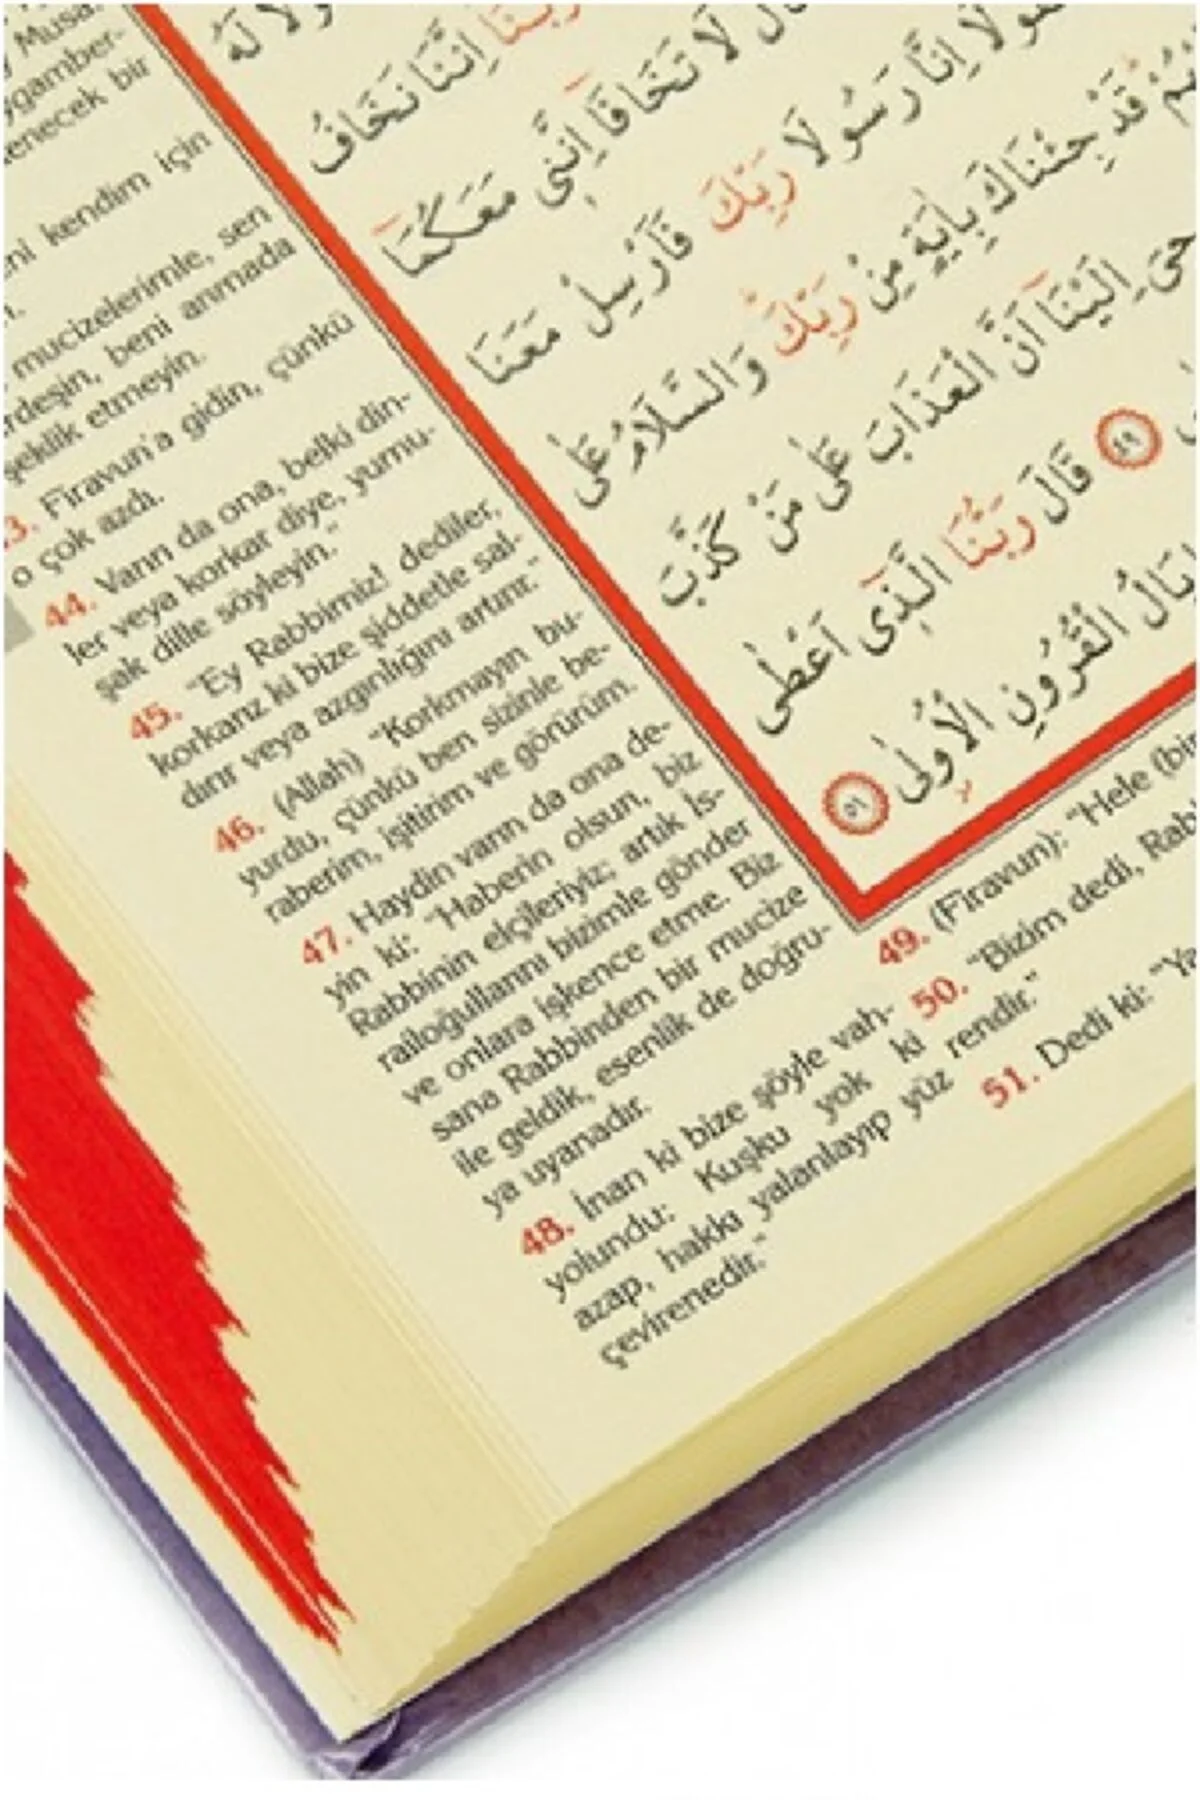 Musa
ygamber-
enecek bir
kendim için
mucizelerimle, sen
beni anmada
etmeyin.
Firavun'a gidin, çünkü
o çok azdı.
44. Varın da ona, belki din-
ler veya korkar diye, yumu-
şak dille söyleyin."
45. "Ey Rabbimiz! dediler,
korkarız ki bize şiddetle sal-
dırır veya azgınlığını artırır."
46. (Allah) "Korkmayın bu-
yurdu, çünkü ben sizinle be-
raberim, işitirim ve görürüm.
47. Haydin varın da ona de-
yin ki: "Haberin olsun, biz
Rabbinin elçileriyiz; artık İs-
railoğullarını bizimle gönder
ve onlara işkence etme. Biz
sana Rabbinden bir mucize
ile geldik, esenlik de doğru-
ya uyanadır.
48. İnan ki bize şöyle vah-
yolundu: Kuşku yok ki
azap, hakkı yalanlayıp yüz
çevirenedir."
49. (Firavun): "Hele (bir
50. "Bizim dedi, Rab
rendir."
51. Dedi ki: "Ya
رَبَّنَٓا اِنَّنَا نَخَافُ
لَا تَخَافَٓا اِنَّن۪ي مَعَكُمَٓا
اِنَّا رَسُولَا رَبِّكَ فَاَرْسِلْ مَعَنَا
قَدْ جِئْنَاكَ بِاٰيَةٍ مِنْ رَبِّكَ وَالسَّلَامُ عَلٰى
اِلَيْنَٓا اَنَّ الْعَذَابَ عَلٰى مَنْ كَذَّبَ
٤٩ قَالَ رَبُّنَا الَّذ۪ٓي اَعْطٰى
بَالُ الْقُرُونِ الْاُولٰى ٥١